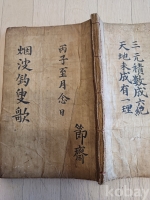 三元積數成六紀
天地未成有一理
丙子至月念日
節齋
烟波釣叟歌
kobay